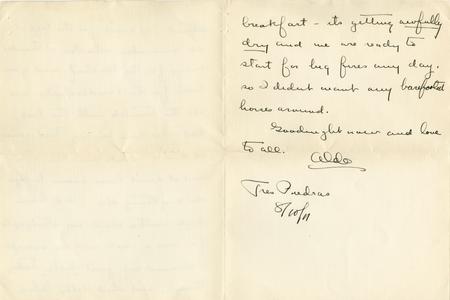 breakfast - its getting awfully
dry and we are ready to
start for big fires any day.
so I didnt want any barefooted
horses around.
Goodnight now and love
to all. Aldo
Tres Piedras
8/10/11